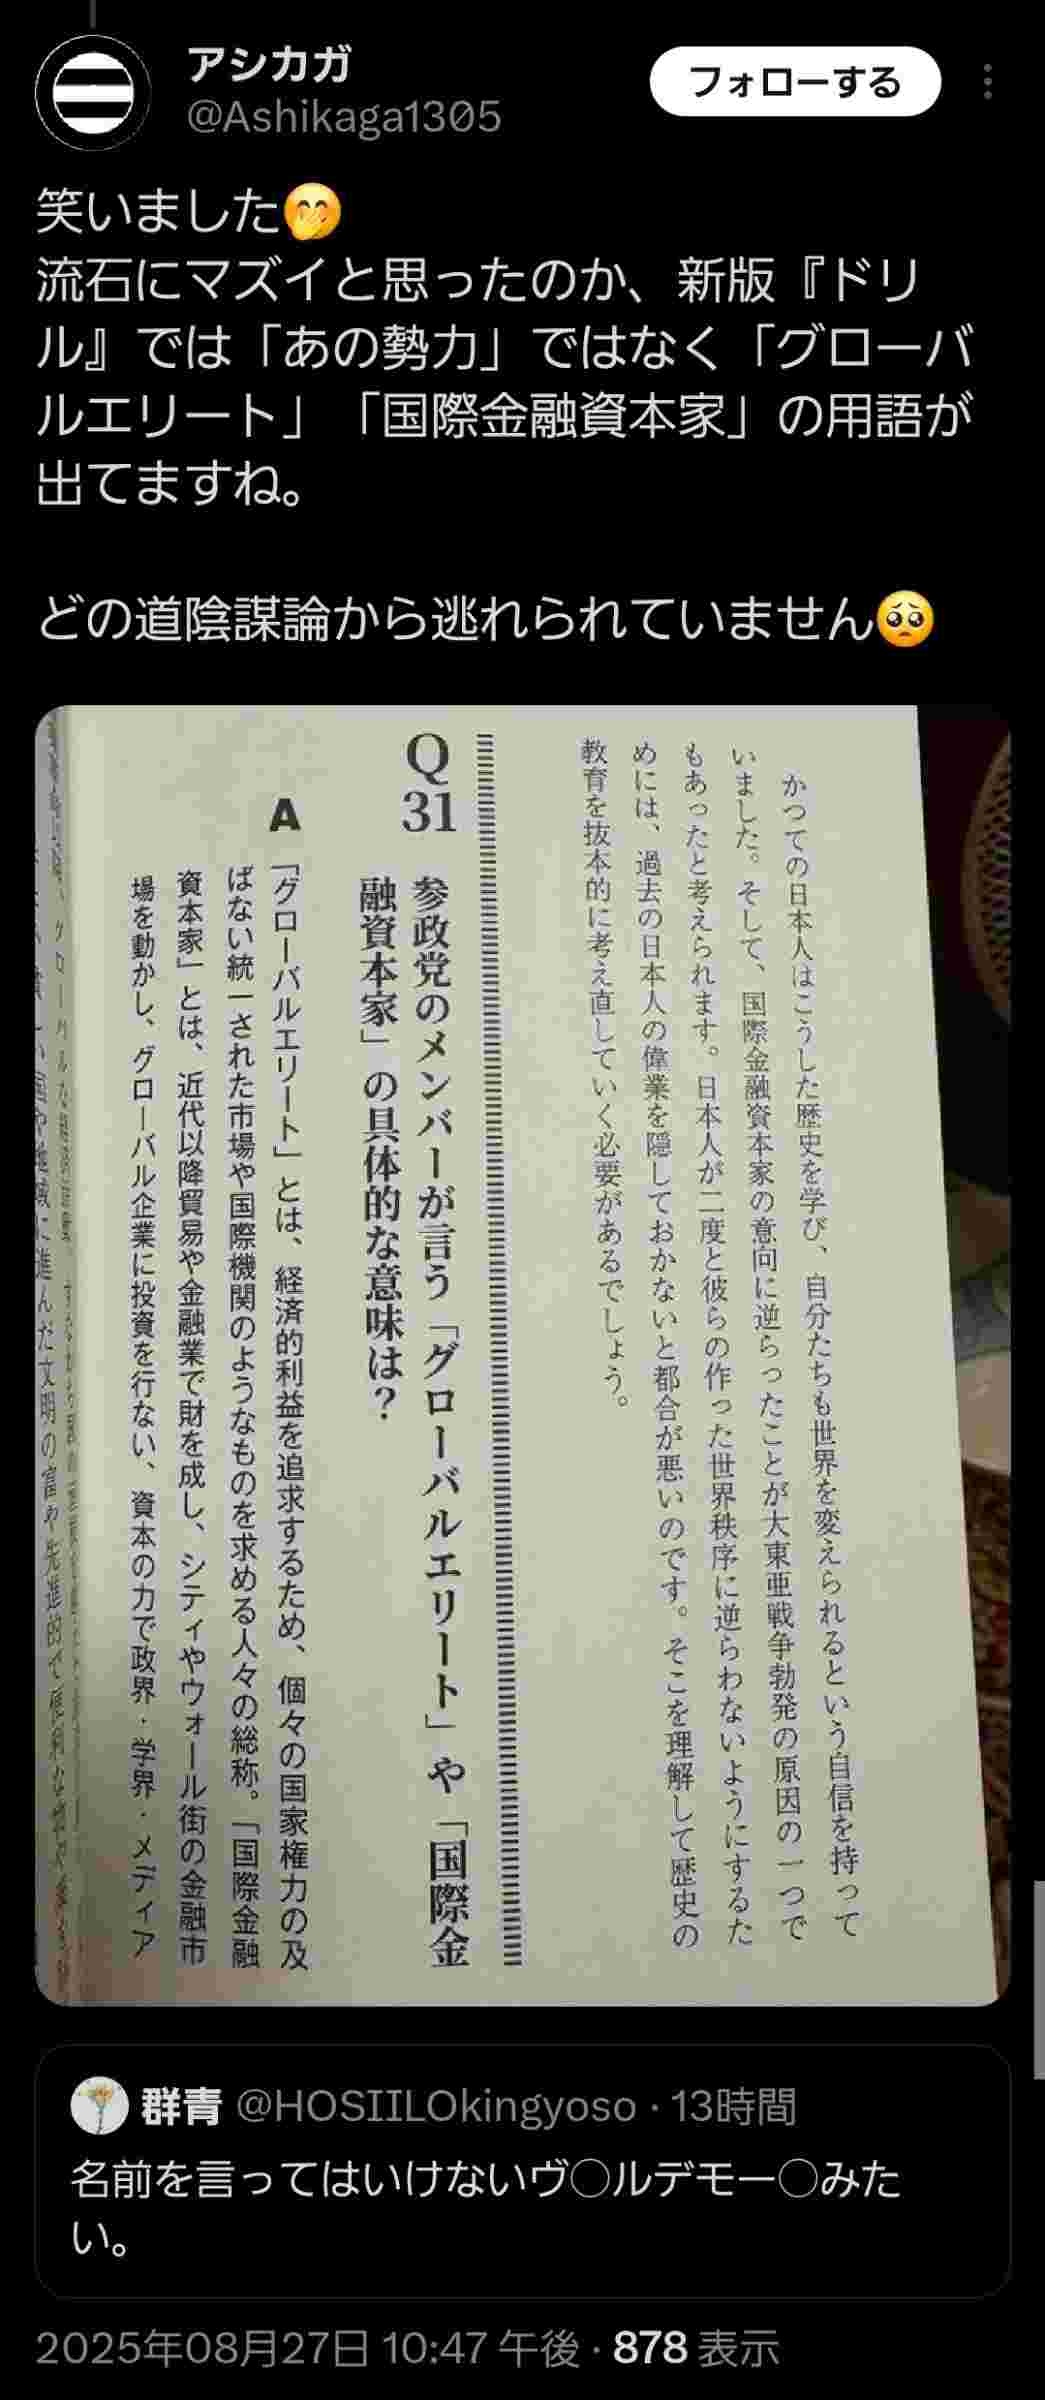 アシカガ
@Ashikaga1305
フォローする
笑いました🤭
流石にマズイと思ったのか、新版『ドリ
ル』では「あの勢力」ではなく「グローバ
ルエリート」「国際金融資本家」の用語が
出てますね。
どの道陰謀論から逃れられていません🥺
かつての日本人はこうした歴史を学び、自分たちも世界を変えられるという自信を持って
いました。そして、国際金融資本家の意向に逆らったことが大東亜戦争勃発の原因の一つで
もあったと考えられます。日本人が二度と彼らの作った世界秩序に逆らわないようにするた
めには、過去の日本人の偉業を隠しておかないと都合が悪いのです。そこを理解して歴史の
教育を抜本的に考え直していく必要があるでしょう。
Q31
参政党のメンバーが言う「グローバルエリート」や「国際金
融資本家」の具体的な意味は？
A
「グローバルエリート」とは、経済的利益を追求するため、個々の国家権力の及
ばない統一された市場や国際機関のようなものを求める人々の総称。「国際金融
資本家」とは、近代以降貿易や金融業で財を成し、シティやウォール街の金融市
場を動かし、グローバル企業に投資を行ない、資本の力で政界・学界・メディア
群青 @HOSIILOkingyoso · 13時間
名前を言ってはいけないヴ◯ルデモー◯みた
い。
2025年08月27日 10:47 午後 · 878 表示